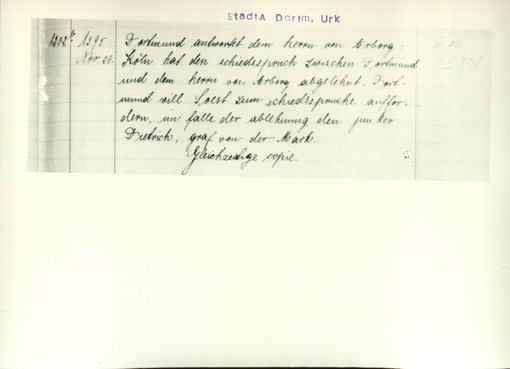 StadtA Dortm. Urk
1302
1395
Nov. 26.
Dortmund antwortet dem herrn von Arberg:
Köln hat den schiedsspruch zwischen Dortmund
und dem herrn von Arberg abgelehnt. Dort-
mund will Soest zum schiedsspruche auffor-
dern, im falle der ablehnung den junker
Dietrich, graf von der Mark.
Gleichzeitige copie.